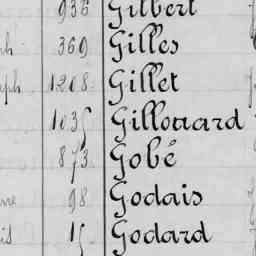 936 Gilbert
ph 369 Gilles
ph 1208 Gillet
1035 Gillouard
873 Gobé
ne 98 Godais
is 15 Godard